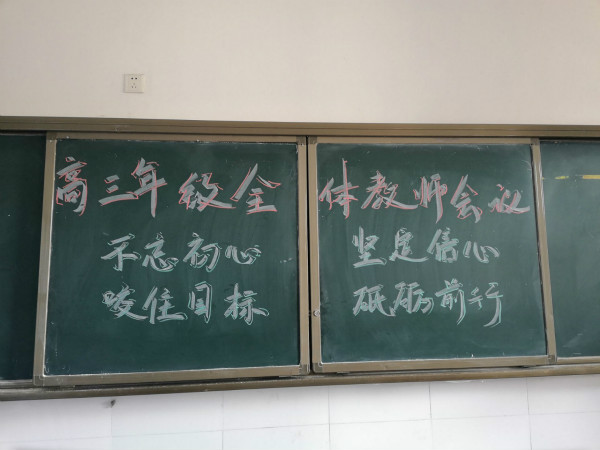 高三年级全体教师会议
不忘初心 坚定信心
咬住目标 砥砺前行